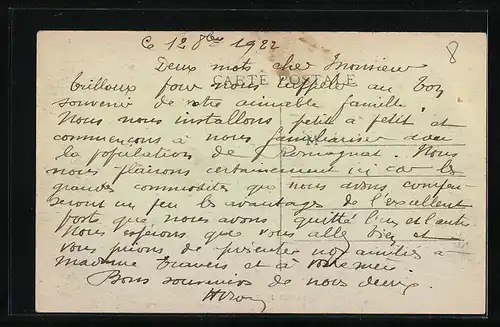 Ce 12 8bre 1922
Deux mots cher Monsieur
CARTE POSTALE
pour nous rappeler au bon
souvenir de votre aimable famille.
Nous nous installons petit à petit et
commençons à nous familiariser avec
la population de Romagnat. Nous
nous plairons certainement ici car les
grandes commodités que nous avons compen-
seront un peu les avantages de l'excellent
poste que nous avons quitté l'un et l'autre.
Nous espérons que vous allez bien et
vous prions de présenter nos amitiés à
madame et à votre mère.
Bons souvenirs de nous deux.
8